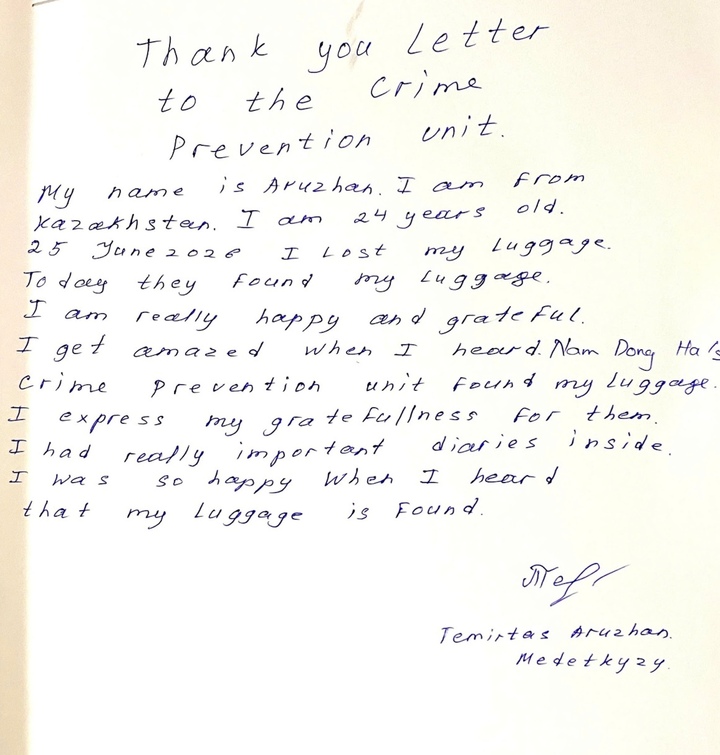 Thank you Letter
to the Crime
Prevention unit.
My name is Aruzhan. I am From
Kazakhstan. I am 24 years old.
25 June 2026 I Lost my Luggage.
Today they Found my Luggage.
I am really happy and grateful.
I get amazed when I heard. Nam Dong Ha's
Crime Prevention unit Found my Luggage.
I express my gratefullness For them.
I had really important diaries inside.
I was so happy When I heard
that my Luggage is Found.
Temirtas Aruzhan.
Medetkyzy.